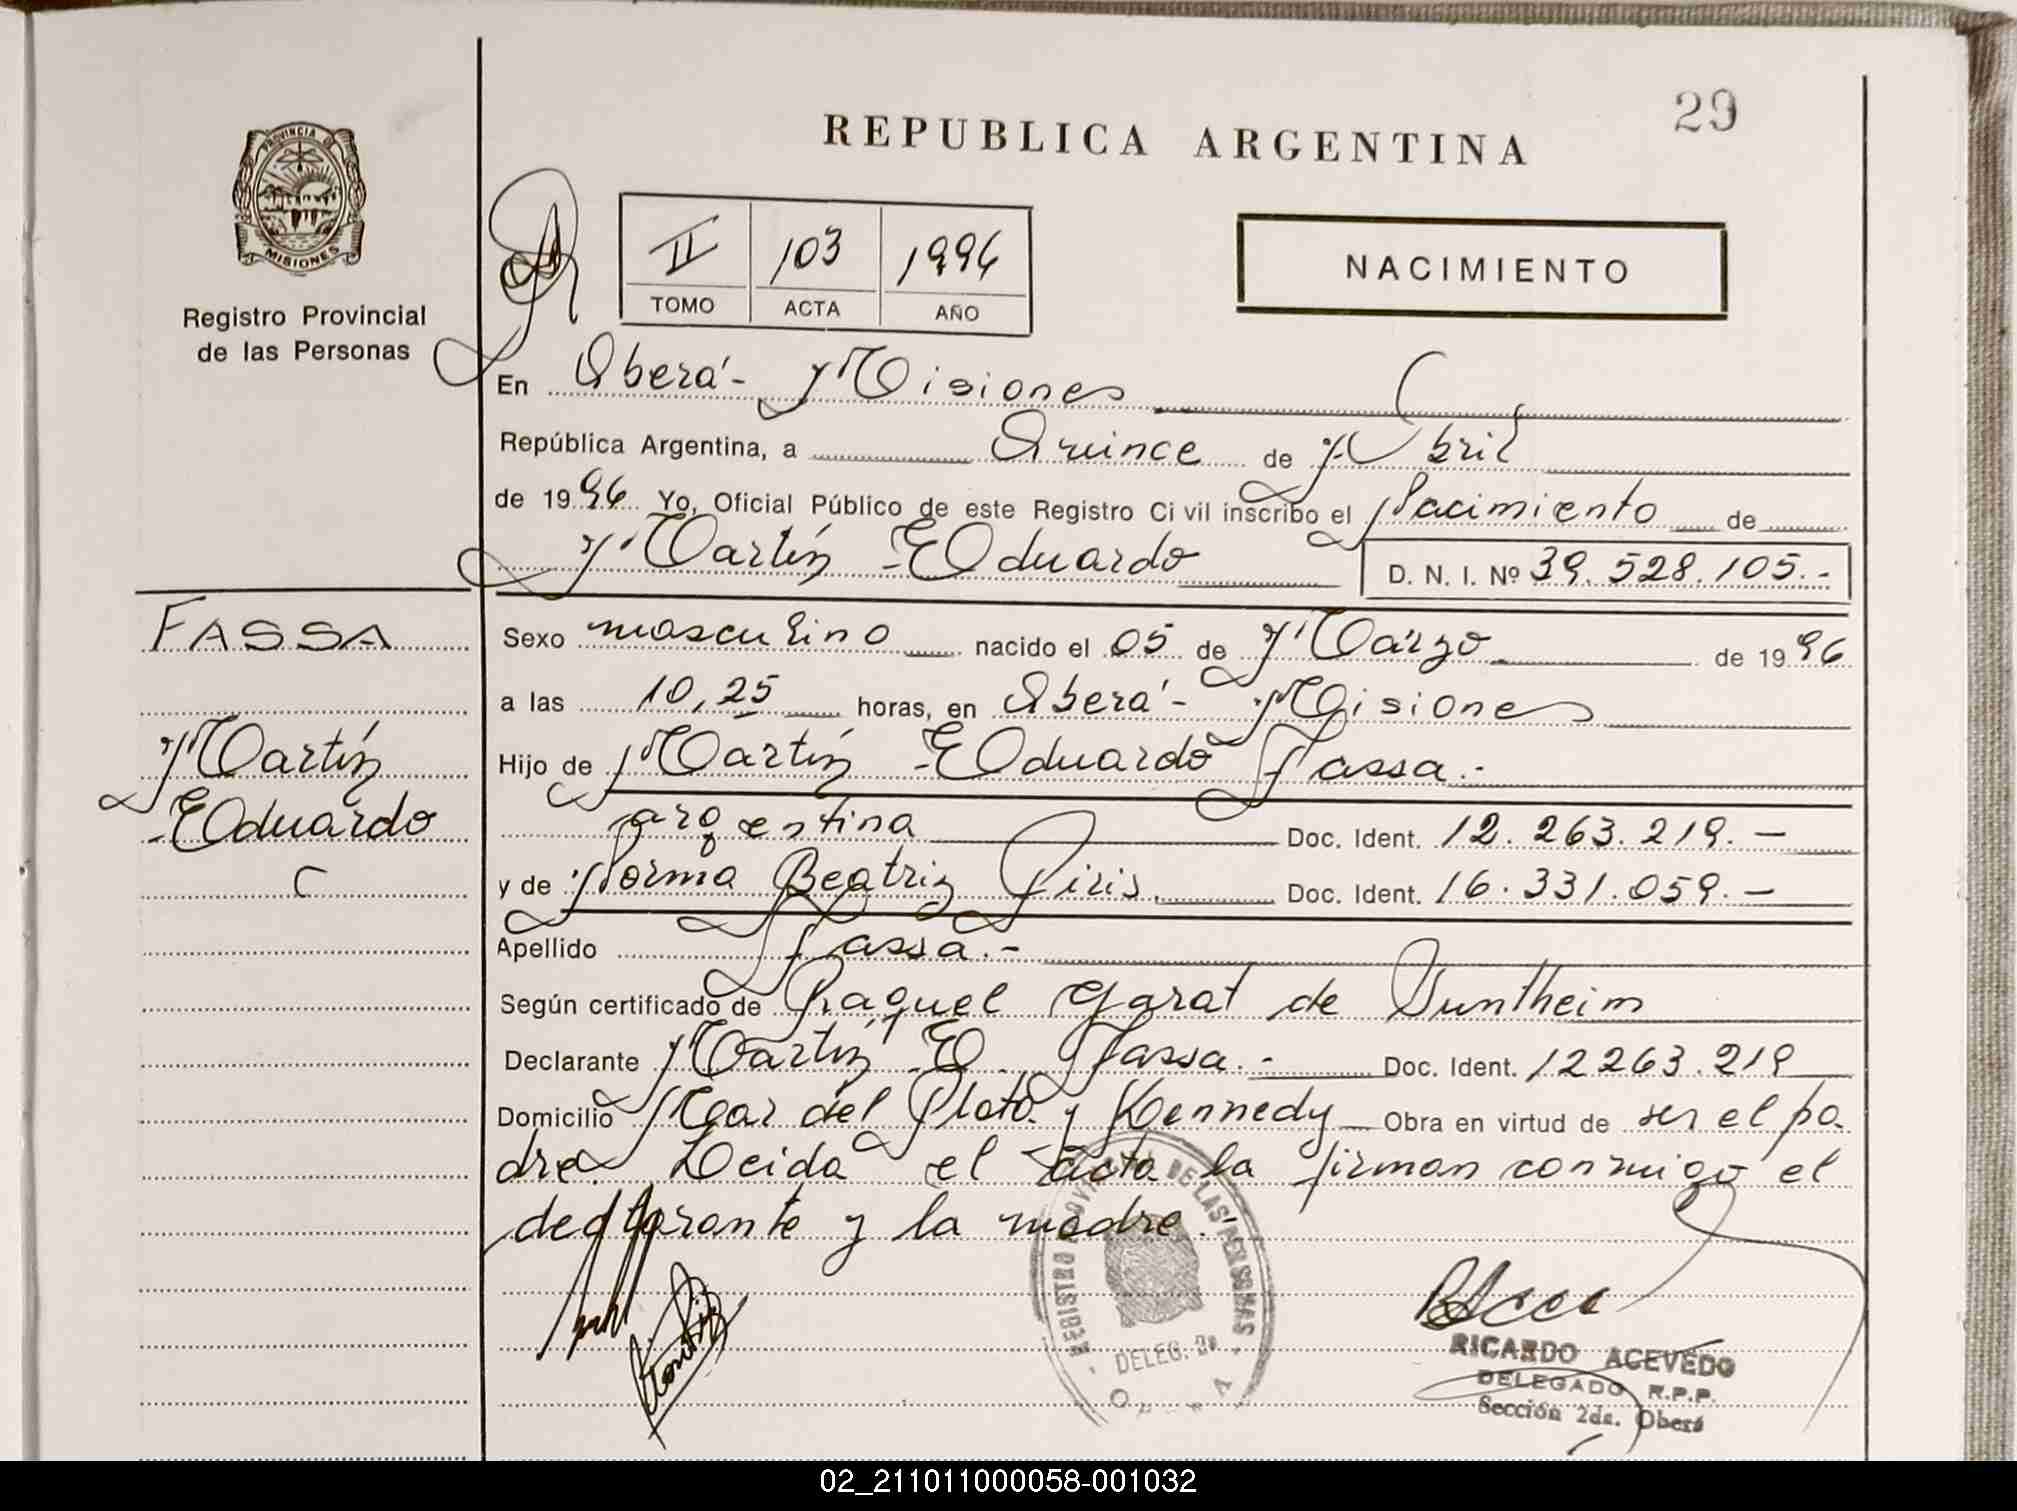 29
REPUBLICA ARGENTINA
PROVINCIA DE
MISIONES
Registro Provincial
de las Personas
II 103 1996
TOMO ACTA AÑO
NACIMIENTO
En Oberá - Misiones
República Argentina, a Quince de Abril
de 1996 Yo, Oficial Público de este Registro Civil inscribo el Nacimiento de
Martín Eduardo D. N. I. Nº 39.528.105.-
FASSA
Martín
Eduardo
Sexo masculino nacido el 05 de Márzo de 1996
a las 10,25 horas, en Oberá - Misiones
Hijo de Martín Eduardo Fassa.-
argentina Doc. Ident. 12.263.219.-
y de Norma Beatriz Piris. Doc. Ident. 16.331.059.-
Apellido Fassa.-
Según certificado de Raquel Garat de Duntheim
Declarante Martín E. Fassa.- Doc. Ident. 12263.219
Domicilio Mar del Plata y Kennedy Obra en virtud de ser el pa-
dre. Leida el acta la firman conmigo el
declarante y la madre.
REGISTRO PROVINCIAL DE LAS PERSONAS
DELEG. 2a
RICARDO ACEVEDO
DELEGADO R.P.P.
Sección 2da. Oberá
02_211011000058-001032